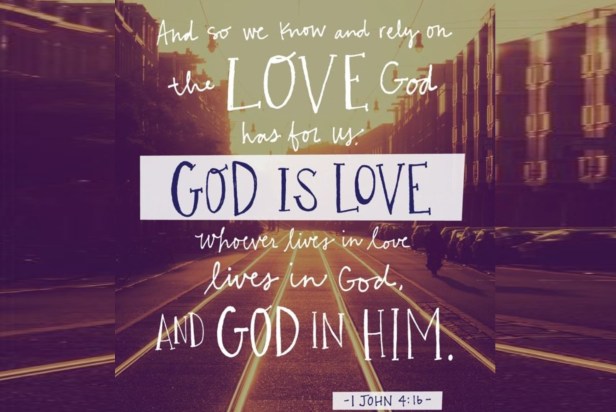 And so we know and rely on
the LOVE God
has for us.
GOD IS LOVE
Whoever lives in love
lives in God,
AND GOD IN HIM.
-1 JOHN 4:16-